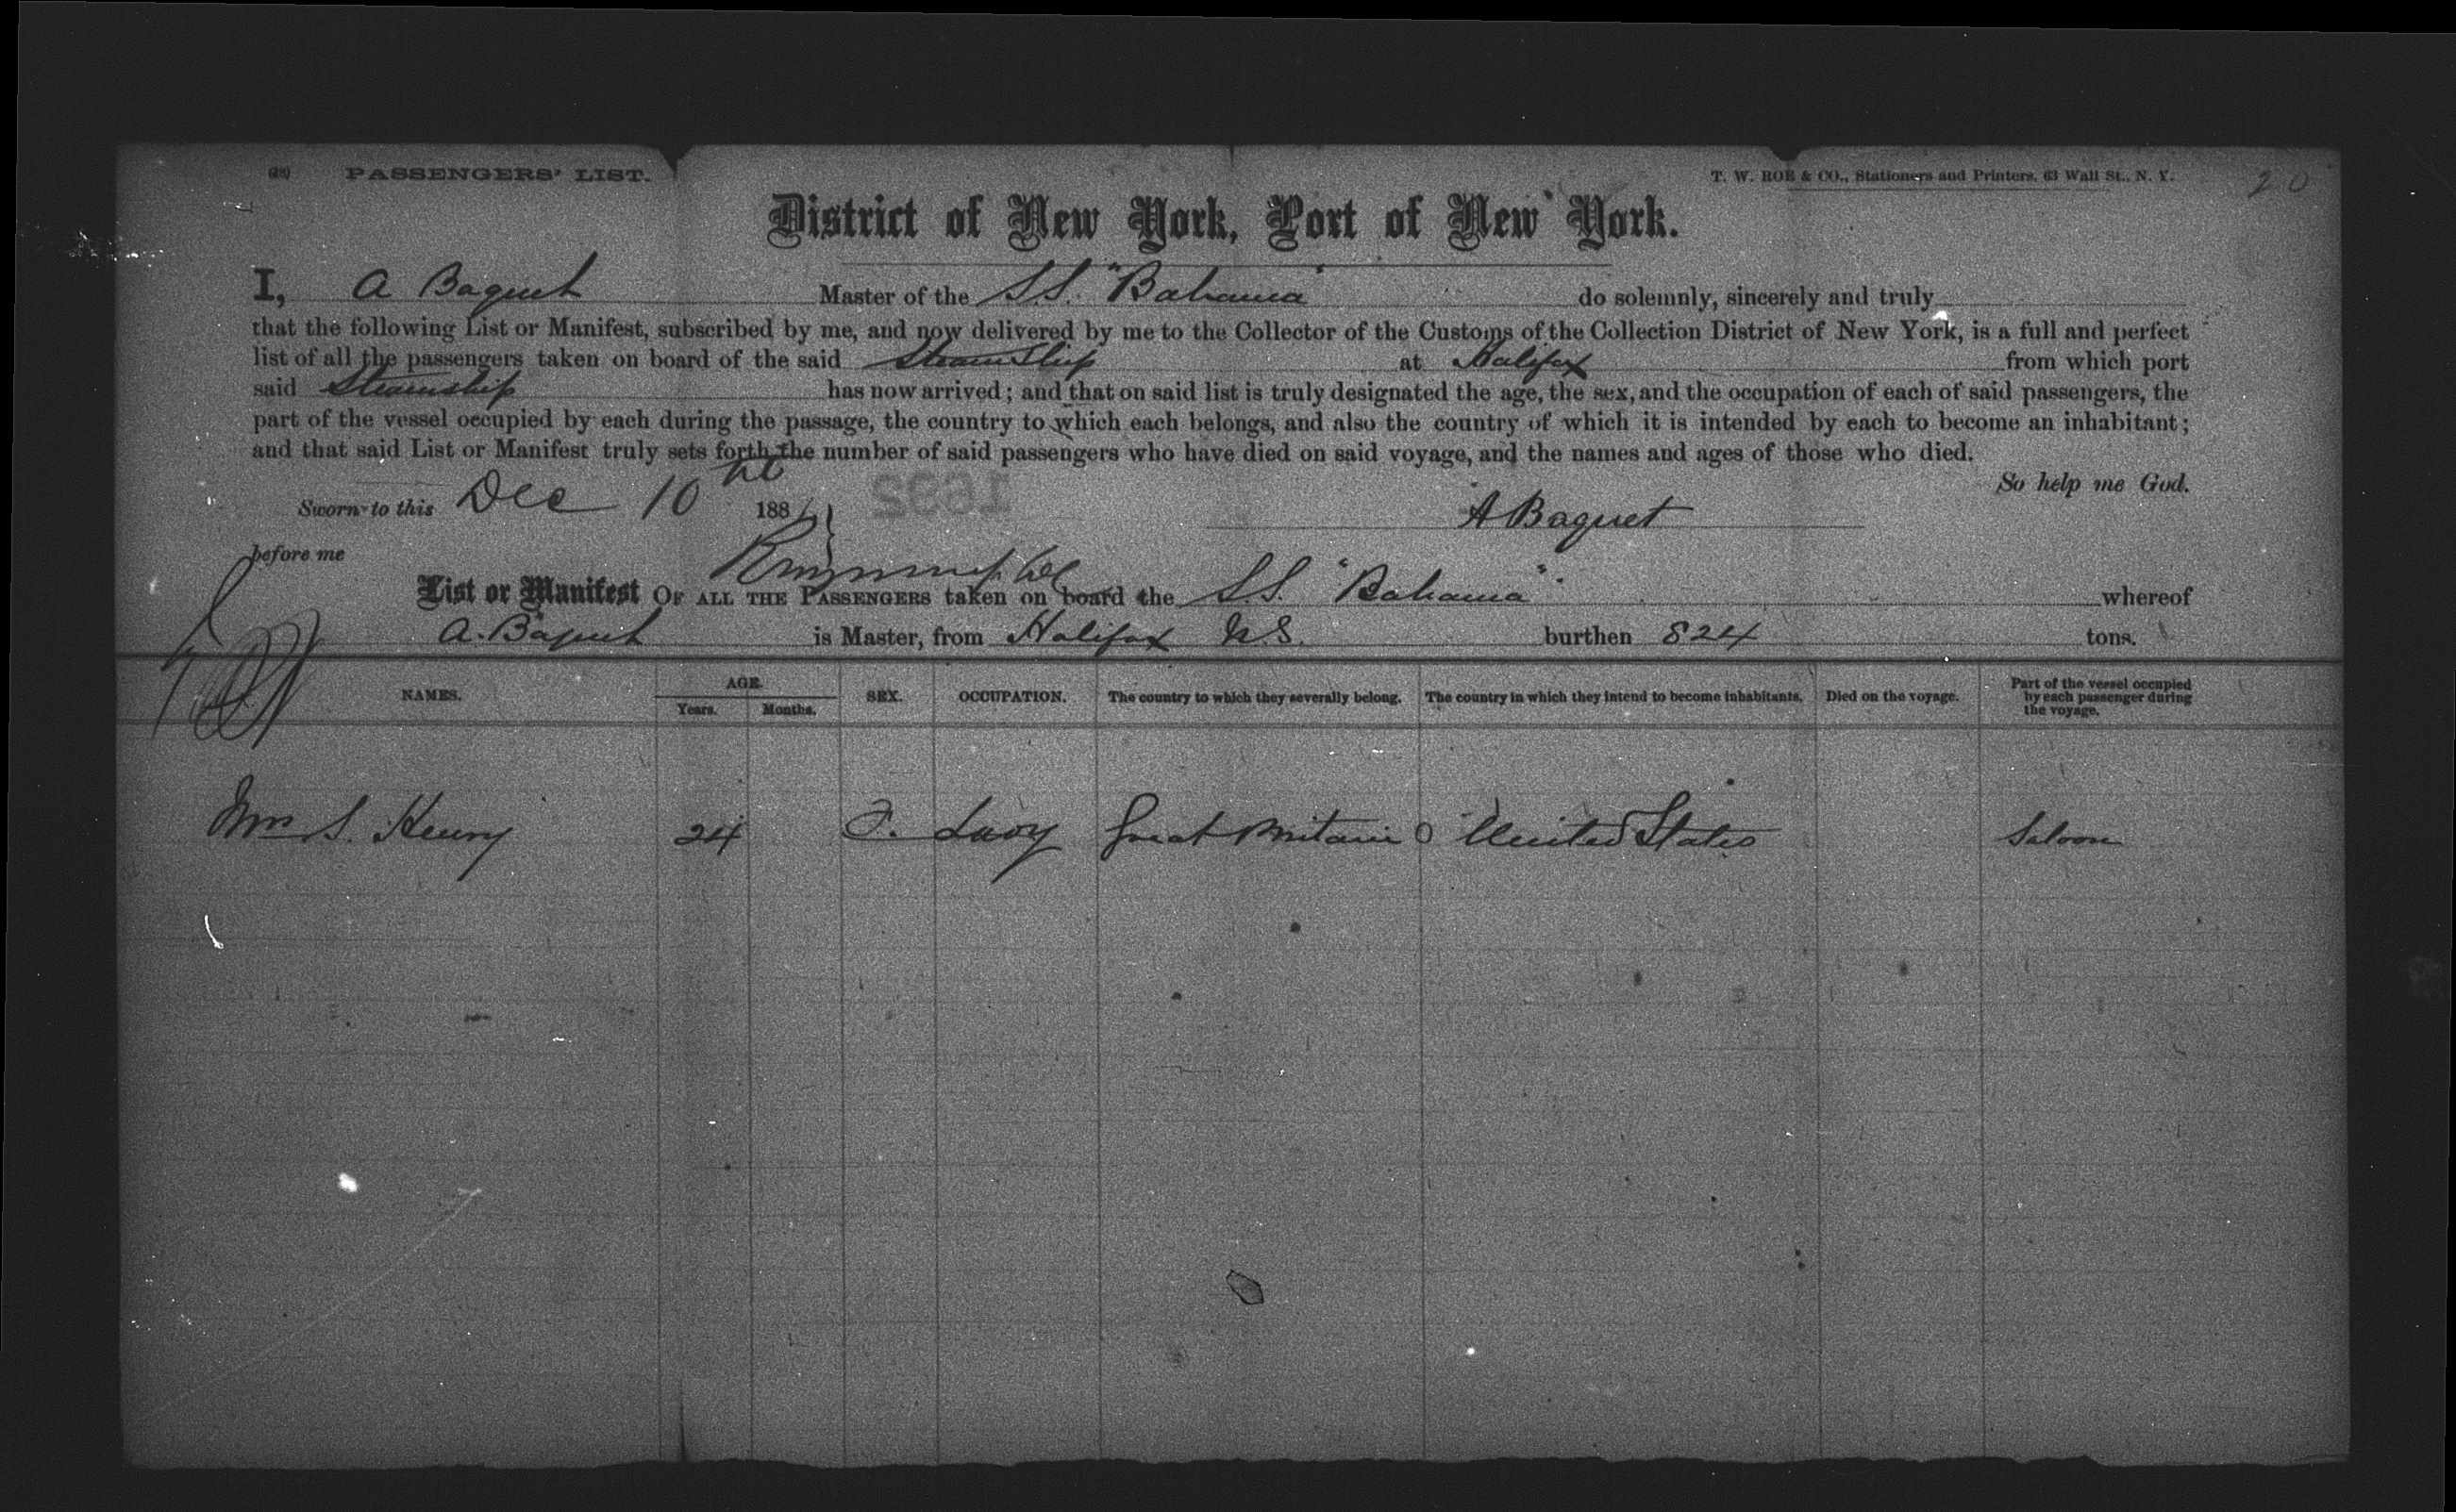 PASSENGERS' LIST.
T. W. ROE & CO., Stationers and Printers, 63 Wall St., N. Y.
20
District of New York, Port of New York.
I, A Baquet Master of the S.S. "Bahama" do solemnly, sincerely and truly
that the following List or Manifest, subscribed by me, and now delivered by me to the Collector of the Customs of the Collection District of New York, is a full and perfect
list of all the passengers taken on board of the said SteamShip at Halifax from which port
said Steamship has now arrived; and that on said list is truly designated the age, the sex, and the occupation of each of said passengers, the
part of the vessel occupied by each during the passage, the country to which each belongs, and also the country of which it is intended by each to become an inhabitant;
and that said List or Manifest truly sets forth the number of said passengers who have died on said voyage, and the names and ages of those who died.
So help me God.
Sworn to this Dec 10th 188
1692
A Baquet
before me
List or Manifest OF ALL THE PASSENGERS taken on board the S.S. "Bahama" whereof
A. Baquet is Master, from Halifax N.S. burthen 824 tons.
NAMES. AGE. Years. Months. SEX. OCCUPATION. The country to which they severally belong. The country in which they intend to become inhabitants. Died on the voyage. Part of the vessel occupied by each passenger during the voyage.
Mrs S. Henry 24 F. Lady Great Britain United States Saloon